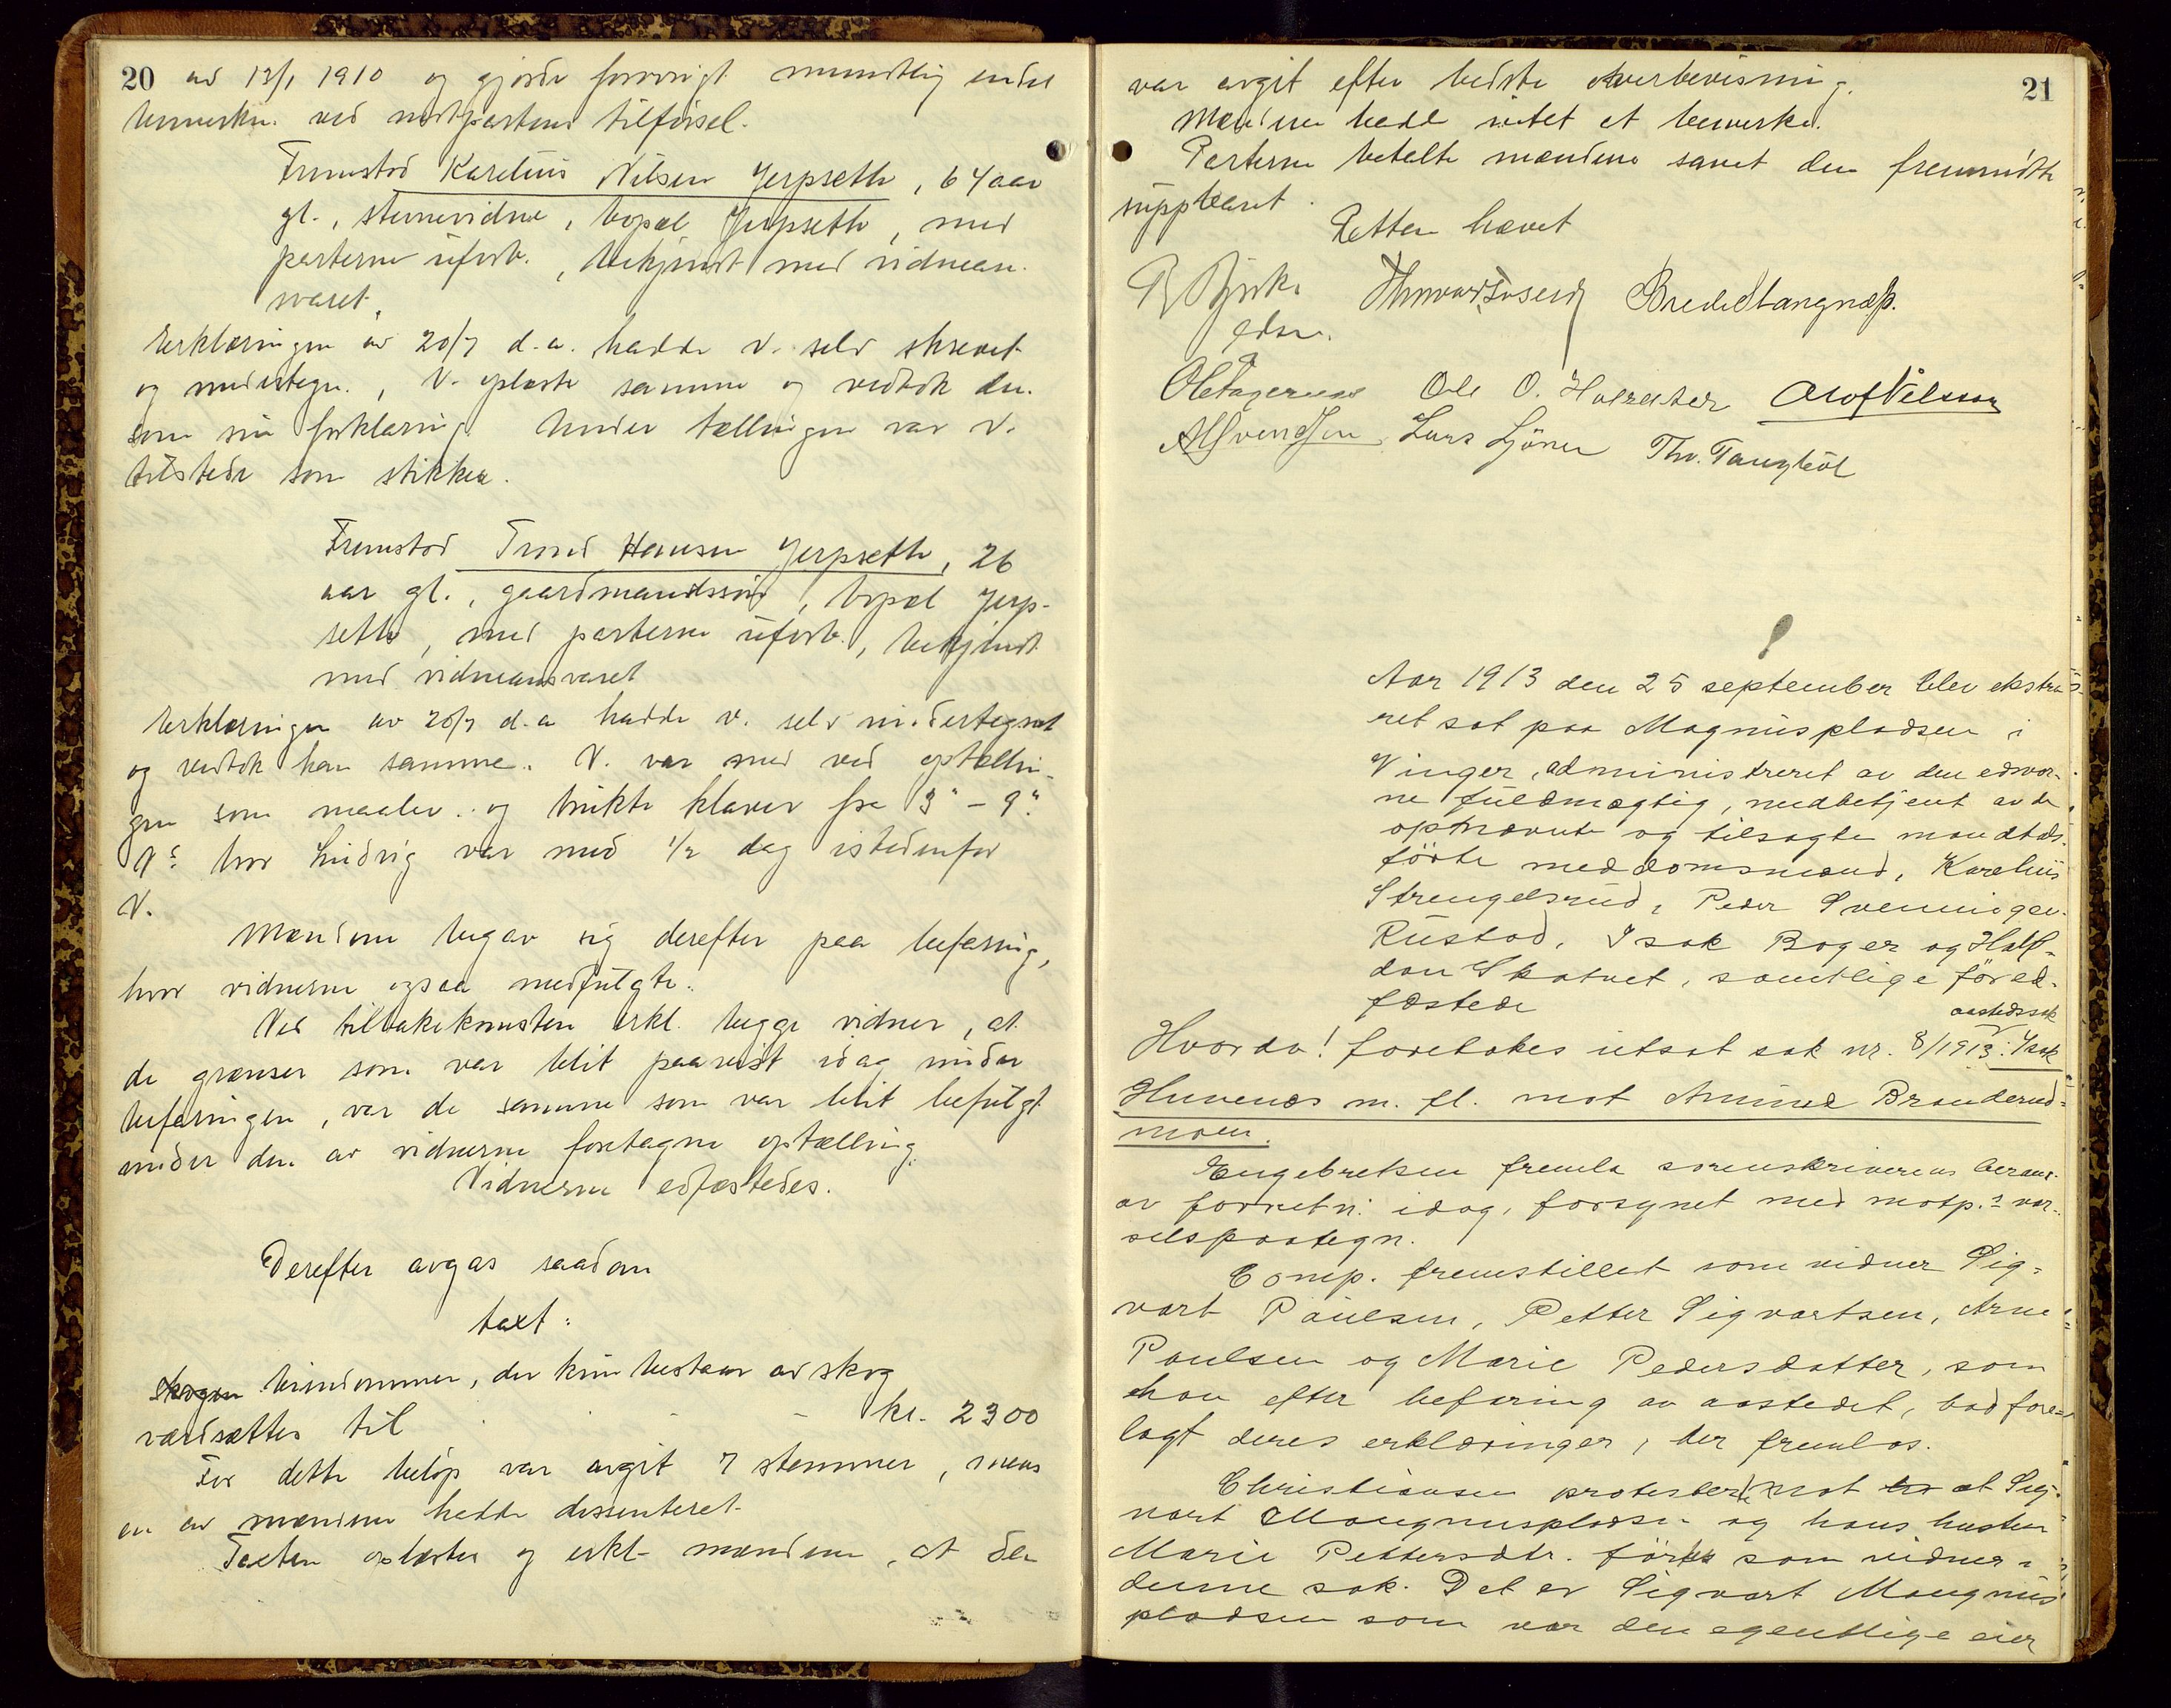 20 av 12/1 1910 og gjorde forøvrigt mundtlig endel
bemerkn. ved motpartens tilførsel.
Fremstod Karelius Nilsen Jerpseth, 64 aar
gl., stevnevidne, bopæl Jerpseth, med
parterne ubesl., bekjendt med vidnean-
svaret.
Erklæringen av 20/7 d.a. hadde v. selv skrevet
og undertegn., V. oplæste samme og vedtok den
som sin forklaring. Under tællingen var V.
tilstede som stikker.
Fremstod Trond Hansen Jerpseth, 26
aar gl., gaardmandssøn, bopæl Jerp-
seth, med parterne ubesl., bekjendt
med vidneansvaret
Erklæringen av 20/7 d.a hadde v. selv undertegnet
og vedtok han samme. V. var med ved optællin-
gen som maaler og brukte klaver fra 3" – 9".
V's bror Ludvig var med 1/2 dag istedenfor
V.
Mændene begav sig derefter paa befaring,
hvor vidnerne ogsaa medfulgte.
Ved tilbakekomsten erkl. begge vidner, at
de grænser som var blit paavist idag under
befaringen, var de samme som var blit befulgt
under den av vidnerne foretagne optælling.
Vidnerne edfæstedes.
Derefter avgas saadan
taxt:
Skogen Eiendommen, der kun bestaar av skog
værdsættes til kr. 2300
For dette beløp var avgit 7 stemmer, mens
en av mændene hadde dissenteret
Taxten oplæstes og erkl. mændene, at den
21
var avgit efter bedste overbevisning.
Mændene hadde intet at bemerke.
Parterne betalte mændene samt den fremmødte
suppleant.
Retten hævet
edsv.
Ole O. Holaater Olof Nilsson
A Svendsen Lars Sjöner Thv. Tangbøl
Aar 1913 den 25 september blev ekstra
ret sat paa Magnusplodsen i
Vinger, administreret av den edsvor-
ne fuldmægtig, medbetjent av de
opnævnte og tilsagte mandtals-
førte meddomsmænd, Karelius
Strengelsrud, Peder Svenningsen
Rustad, Isak Boger og Half-
dan Skatvet, samtlige før ed-
fæstede
aastedssak
Hvorda! foretokes utsat sak nr. 8/1913: Isak
Huvenæs m. fl. mot Amund Branderud-
moen.
Engebretsen fremla sorenskriverens beram.
av forretn. idag, forsynet med motp.s var-
selspaategn.
Comp. fremstillet som vidner Sig-
vart Paulsen, Petter Sigvartsen, Arne
Paulsen og Marie Pedersdatter, som
han efter befaring av aastedet, bad fore-
lagt deres erklæringer, der fremlas.
Christiansen protester. mot at Sig-
vart Mangnusplodsen og hans hustru
Marie Pettersdtr. føres som vidner i
denne sak. Det er Sigvart Mangnus
plodsen som var den egentlige eier